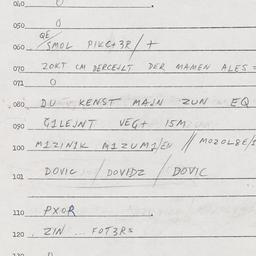 040 0
050 0
QE
060 SMOL PIKC+3R / +
070 ZOKT CM DERCEJLT DER MAMEN ALES =
071 0
080 DU KENST MAJN ZUN EQ
090 G1LEJNT VEG+ 15M
100 M1ZIN1K M1ZUM1/EN // MOZOL8E/
101 DOVIC / DOVIDZ / DOVIC
110 PXOR
120 ZIN ... FOT3RS
130 0